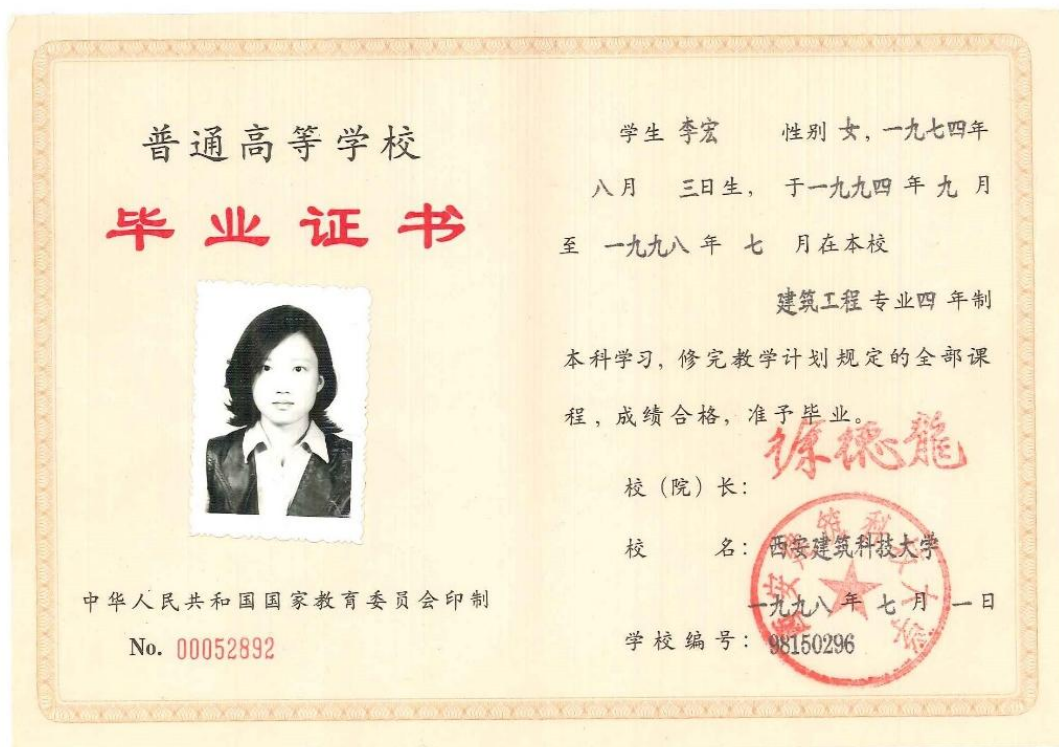 普通高等学校
毕业证书
中华人民共和国国家教育委员会印制
No. 00052892
学生 李宏 性别 女，一九七四年
八月 三日生， 于一九九四 年 九 月
至 一九九八 年 七 月在本校
建筑工程 专业四 年制
本科学习，修完教学计划规定的全部课
程，成绩合格，准予毕业。
校（院）长： 徐德龍
校 名： 西安建筑科技大学
西安建筑科技大学
一九九八 年 七 月 一日
学校编号： 98150296